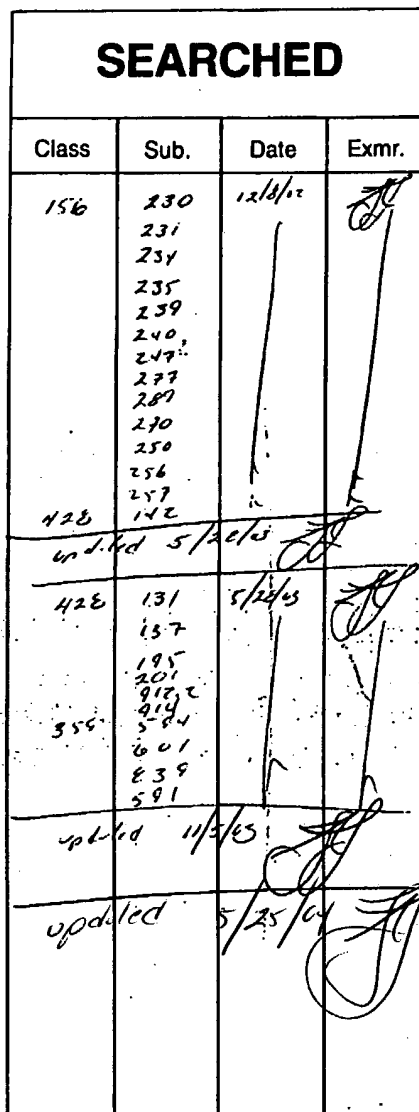 SEARCHED
Class Sub. Date Exmr.
156 230 12/8/02
231
234
235
239
240
247
277
287
270
250
256
257
428 142
updated 5/28/03
428 131 5/28/03
137
195
201
912.2
914
359 584
601
839
591
updated 11/5/03
updated 5/25/04